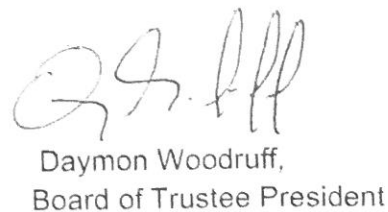 Daymon Woodruff,
Board of Trustee President